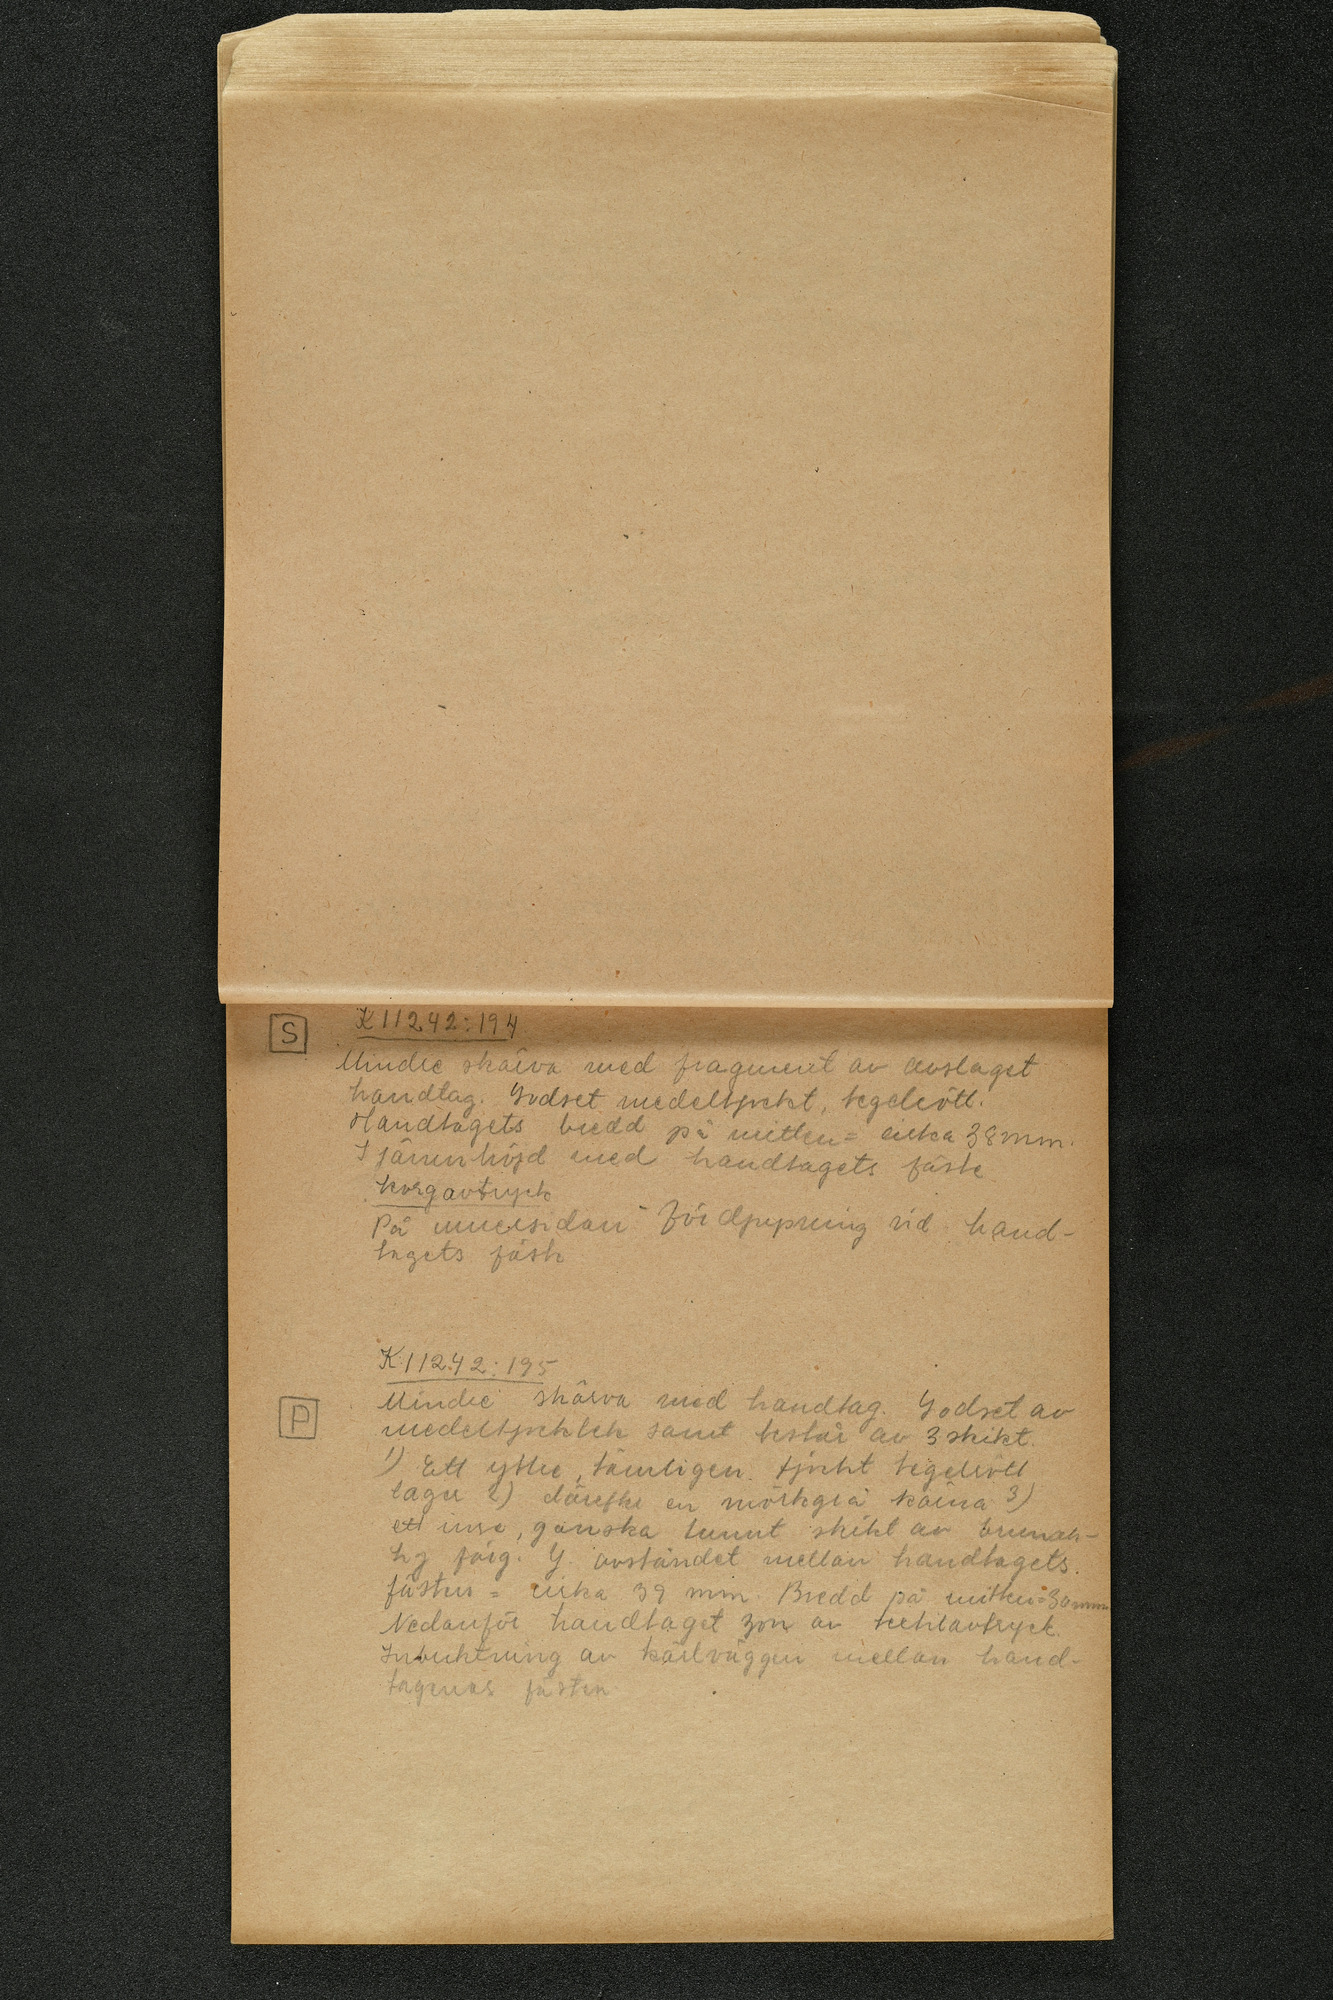 S K 11242:194
Mindre skärva med fragment av avslaget
handtag. Godset medeltjockt, tegelrött.
Handtagets bredd på mitten = cirka 38 mm.
I jämnhöjd med handtagets fäste
korgavtryck
På innersidan fördjupning vid hand-
tagets fäste
K 11242:195
P Mindre skärva med handtag. Godset av
medeltjocklek samt består av 3 skikt.
1) Ett yttre, tämligen tjockt tegelrött
lager 2) därefter en mörkgrå kärna 3)
ett inre, ganska tunnt skikt av brunak-
tig färg. Y. avståndet mellan handtagets
fästen = cirka 39 mm. Bredd på mitten = 30 mm
Nedanför handtaget zon av textilavtryck.
Inbuktning av kärlväggen mellan hand-
tagenas fästen